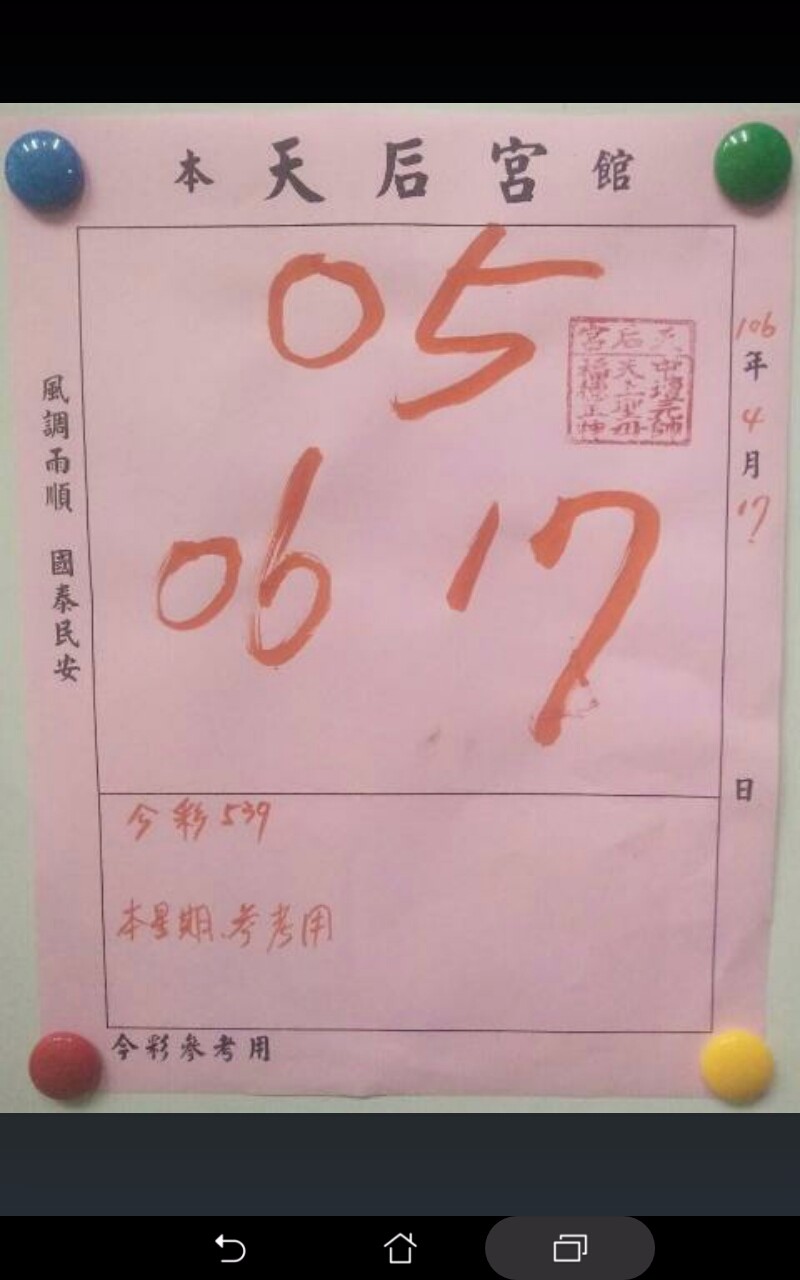 本天后宮館
05
天后宮
中壇元帥
天上聖母
福德正神
06 17
106年4月17日
風調雨順 國泰民安
今彩539
本星期.参考用
今彩參考用